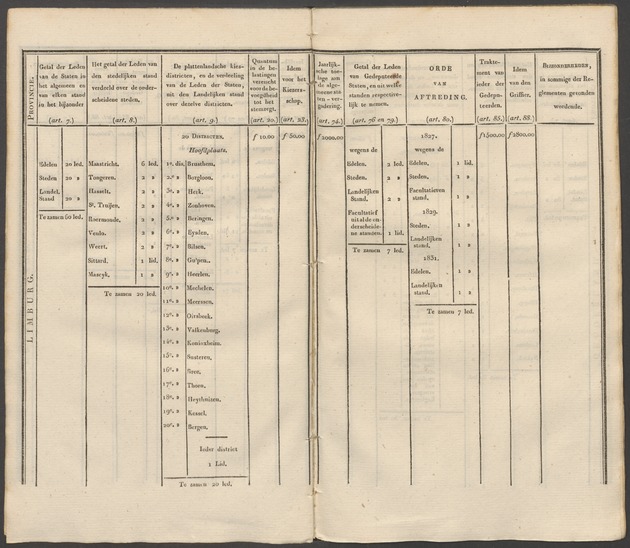 PROVINCIE.
Getal der Leden
van de Staten in
het algemeen en
van elken stand
in het bijzonder
(art. 7.)
Het getal der Leden van
den stedelijken stand
verdeeld over de onder-
scheidene steden,
(art. 8.)
De plattenlandsche kies-
districten, en de verdeeling
van de Leden der Staten,
uit den Landelijken stand
over dezelve districten.
(art. 9.)
Quantum
in de be-
lastingen
vereischt
voor de be-
voegdheid
tot het
stemregt.
(art. 20.)
Idem
voor het
Kiezer-
schap.
(art. 23.)
Jaarlijk-
sche toe-
lage aan
de alge-
meene sta-
ten-ver-
gadering.
(art. 74.)
Getal der Leden
van Gedeputeerde
Staten, en uit welke
standen respectieve-
lijk te nemen.
(art. 76 en 79.)
ORDE
VAN
AFTREDING.
(art. 80.)
Trakte-
ment van
ieder der
Gedepu-
teerden.
(art. 85.)
Idem
van den
Griffier.
(art. 88.)
BIJZONDERHEDEN,
in sommige der Re-
glementen gevonden
wordende.
LIMBURG.
Edelen 20 led.
Steden 20 »
Landel.
Stand 20 »
Te zamen 60 led.
Maastricht. 6 led.
Tongeren. 2 »
Hasselt. 2 »
St. Truijen. 2 »
Roermonde. 2 »
Venlo. 2 »
Weert. 2 »
Sittard. 1 lid.
Maseyk. 1 »
Te zamen 20 led.
20 DISTRICTEN.
Hoofdplaats.
1e. dis. Brusthem.
2e. » Borgloon.
3e. » Herk.
4e. » Zonhoven.
5e. » Beringen.
6e. » Eysden.
7e. » Bilsen.
8e. » Gulpen.
9e. » Heerlen.
10e. » Mechelen.
11e. » Meerssen.
12e. » Oirsbeek.
13e. » Valkenburg.
14e. » Konixheim.
15e. » Susteren.
16e. » Bree.
17e. » Thorn.
18e. » Heythuisen.
19e. » Kessel.
20e. » Bergen.
Ieder district
1 Lid.
Te zamen 20 led.
f 10.00
f 50.00
f 2000.00
wegens de
Edelen. 2 led.
Steden. 2 »
Landelijken
Stand. 2 »
Facultatief
uit al de on-
derscheide-
ne standen. 1 lid.
Te zamen 7 led.
1827.
wegens de
Edelen. 1 lid.
Steden. 1 »
Facultatieven
stand. 1 »
1829.
Steden. 1 »
Landelijken
stand. 1 »
1831.
Edelen. 1 »
Landelijken
stand. 1 »
Te zamen 7 led.
f 1500.00
f 2800.00